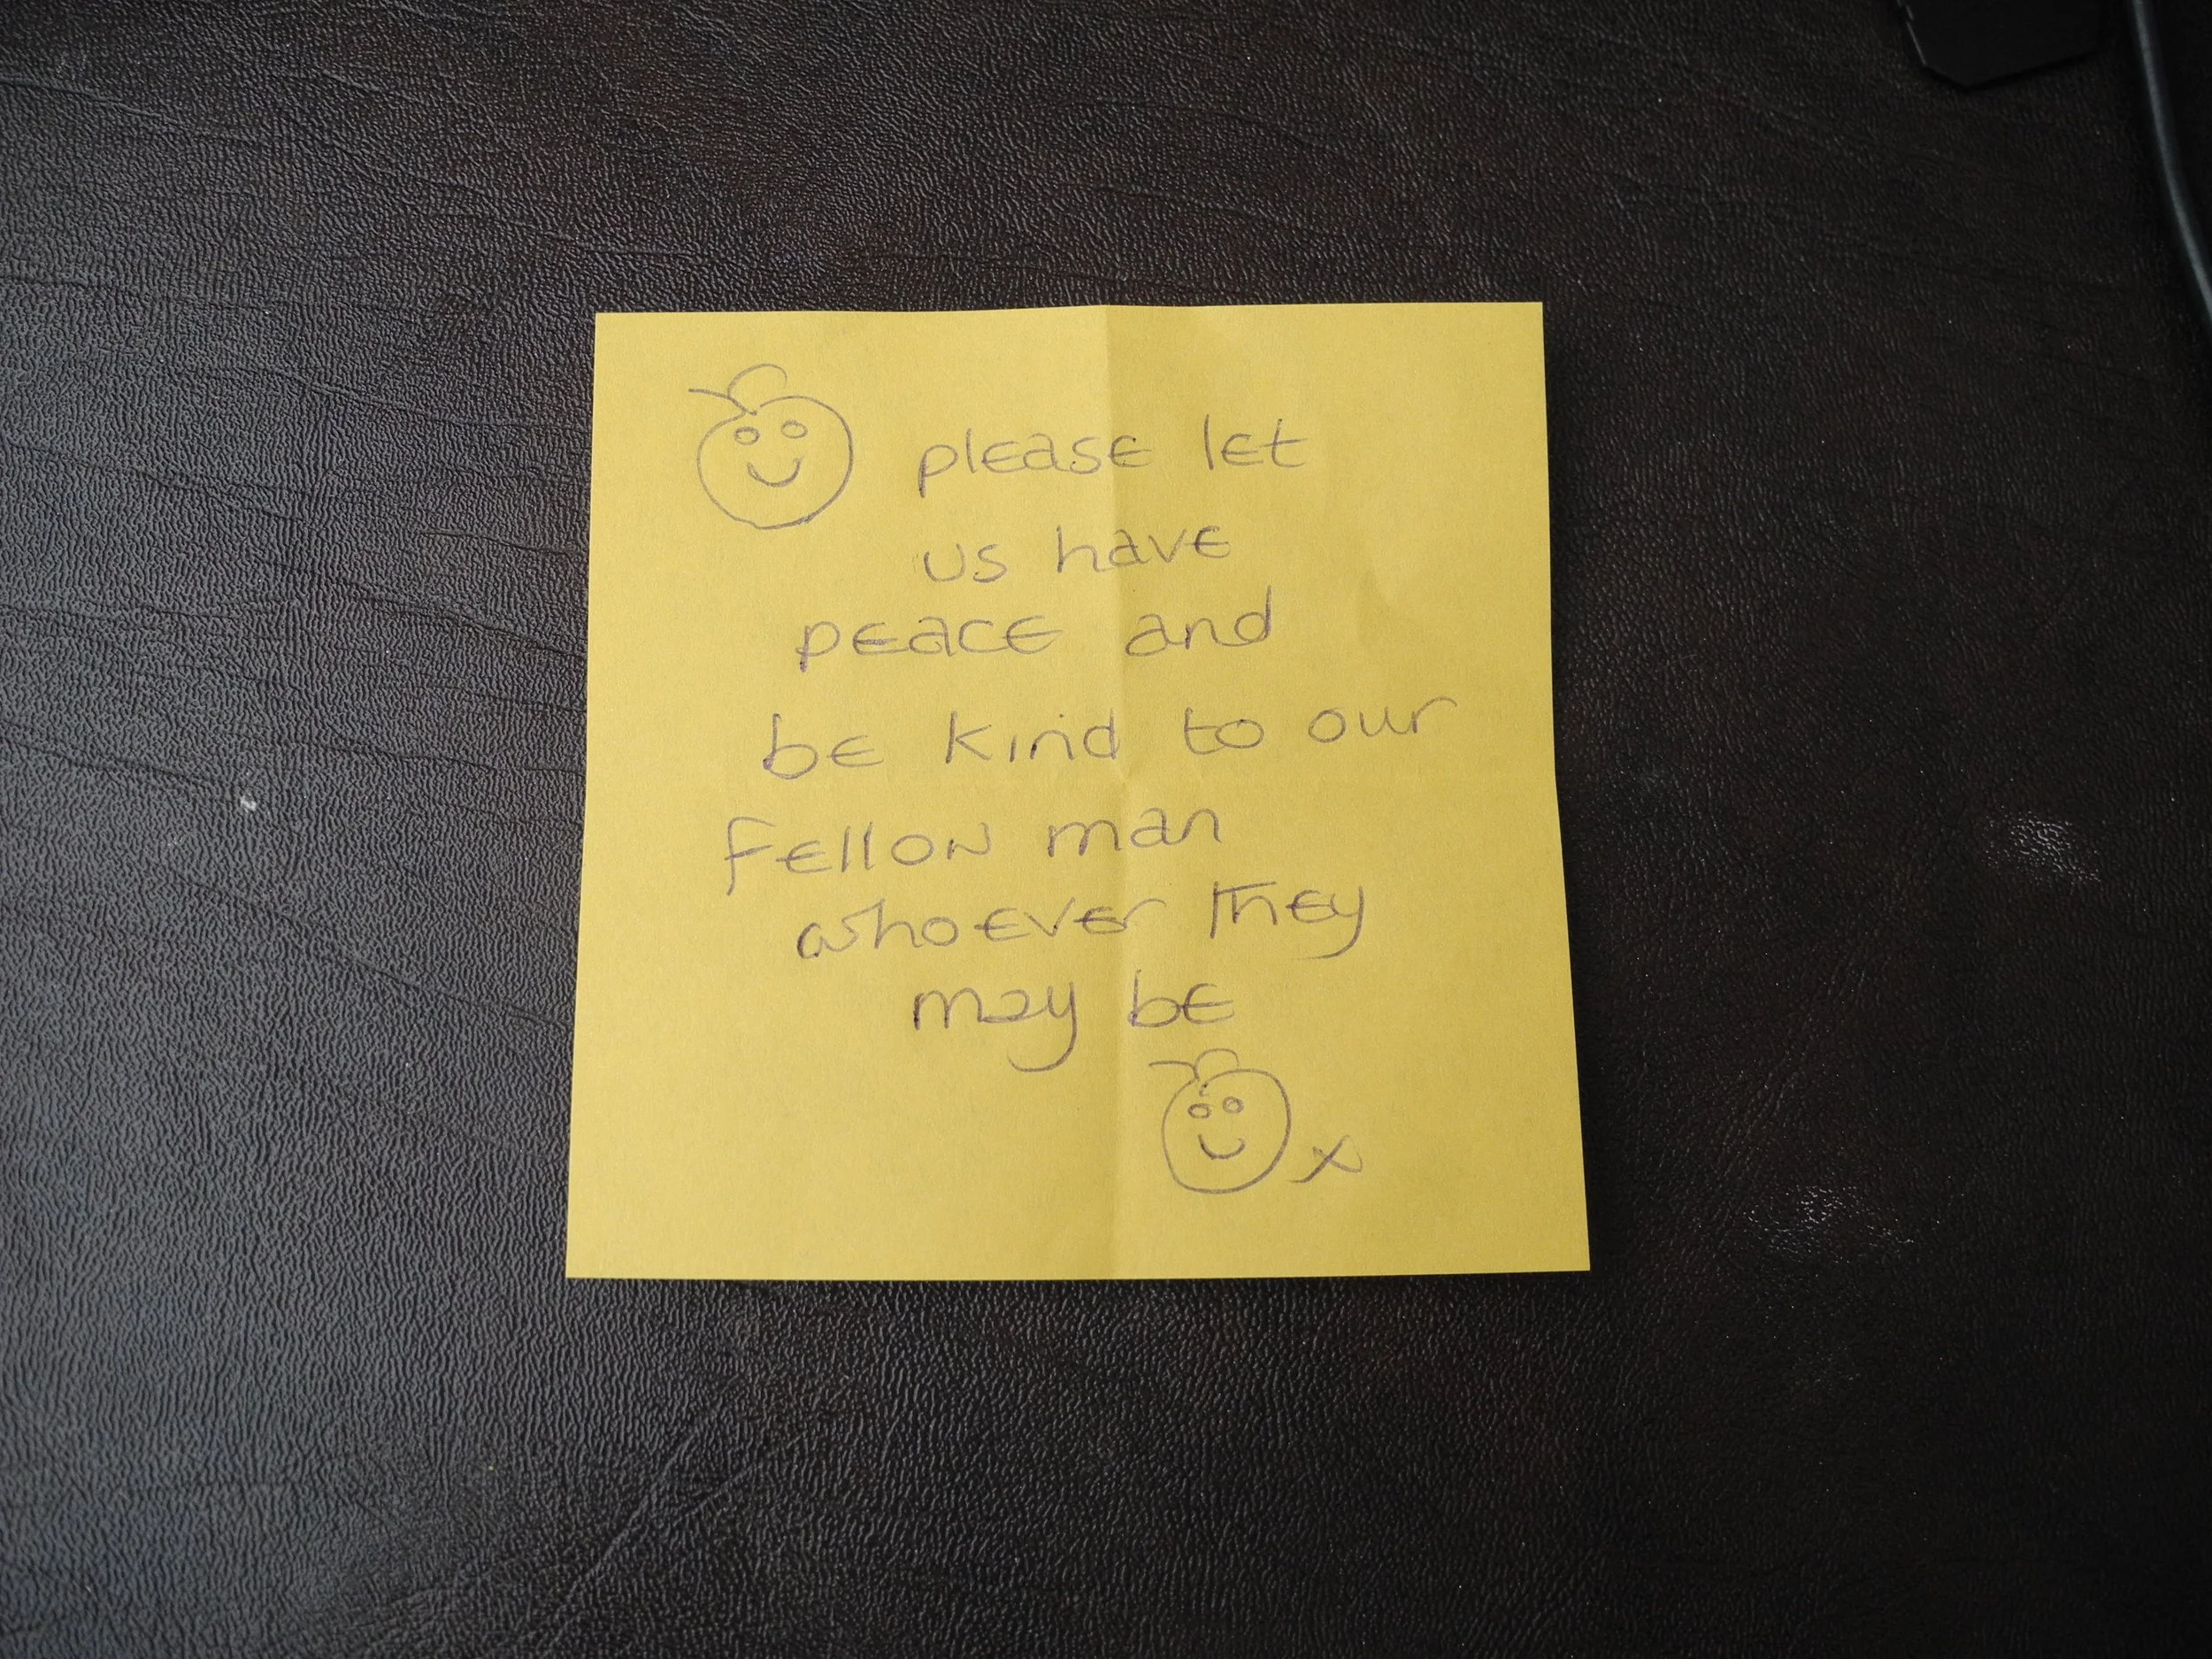 please let
us have
peace and
be kind to our
fellow man
whoever they
may be
x